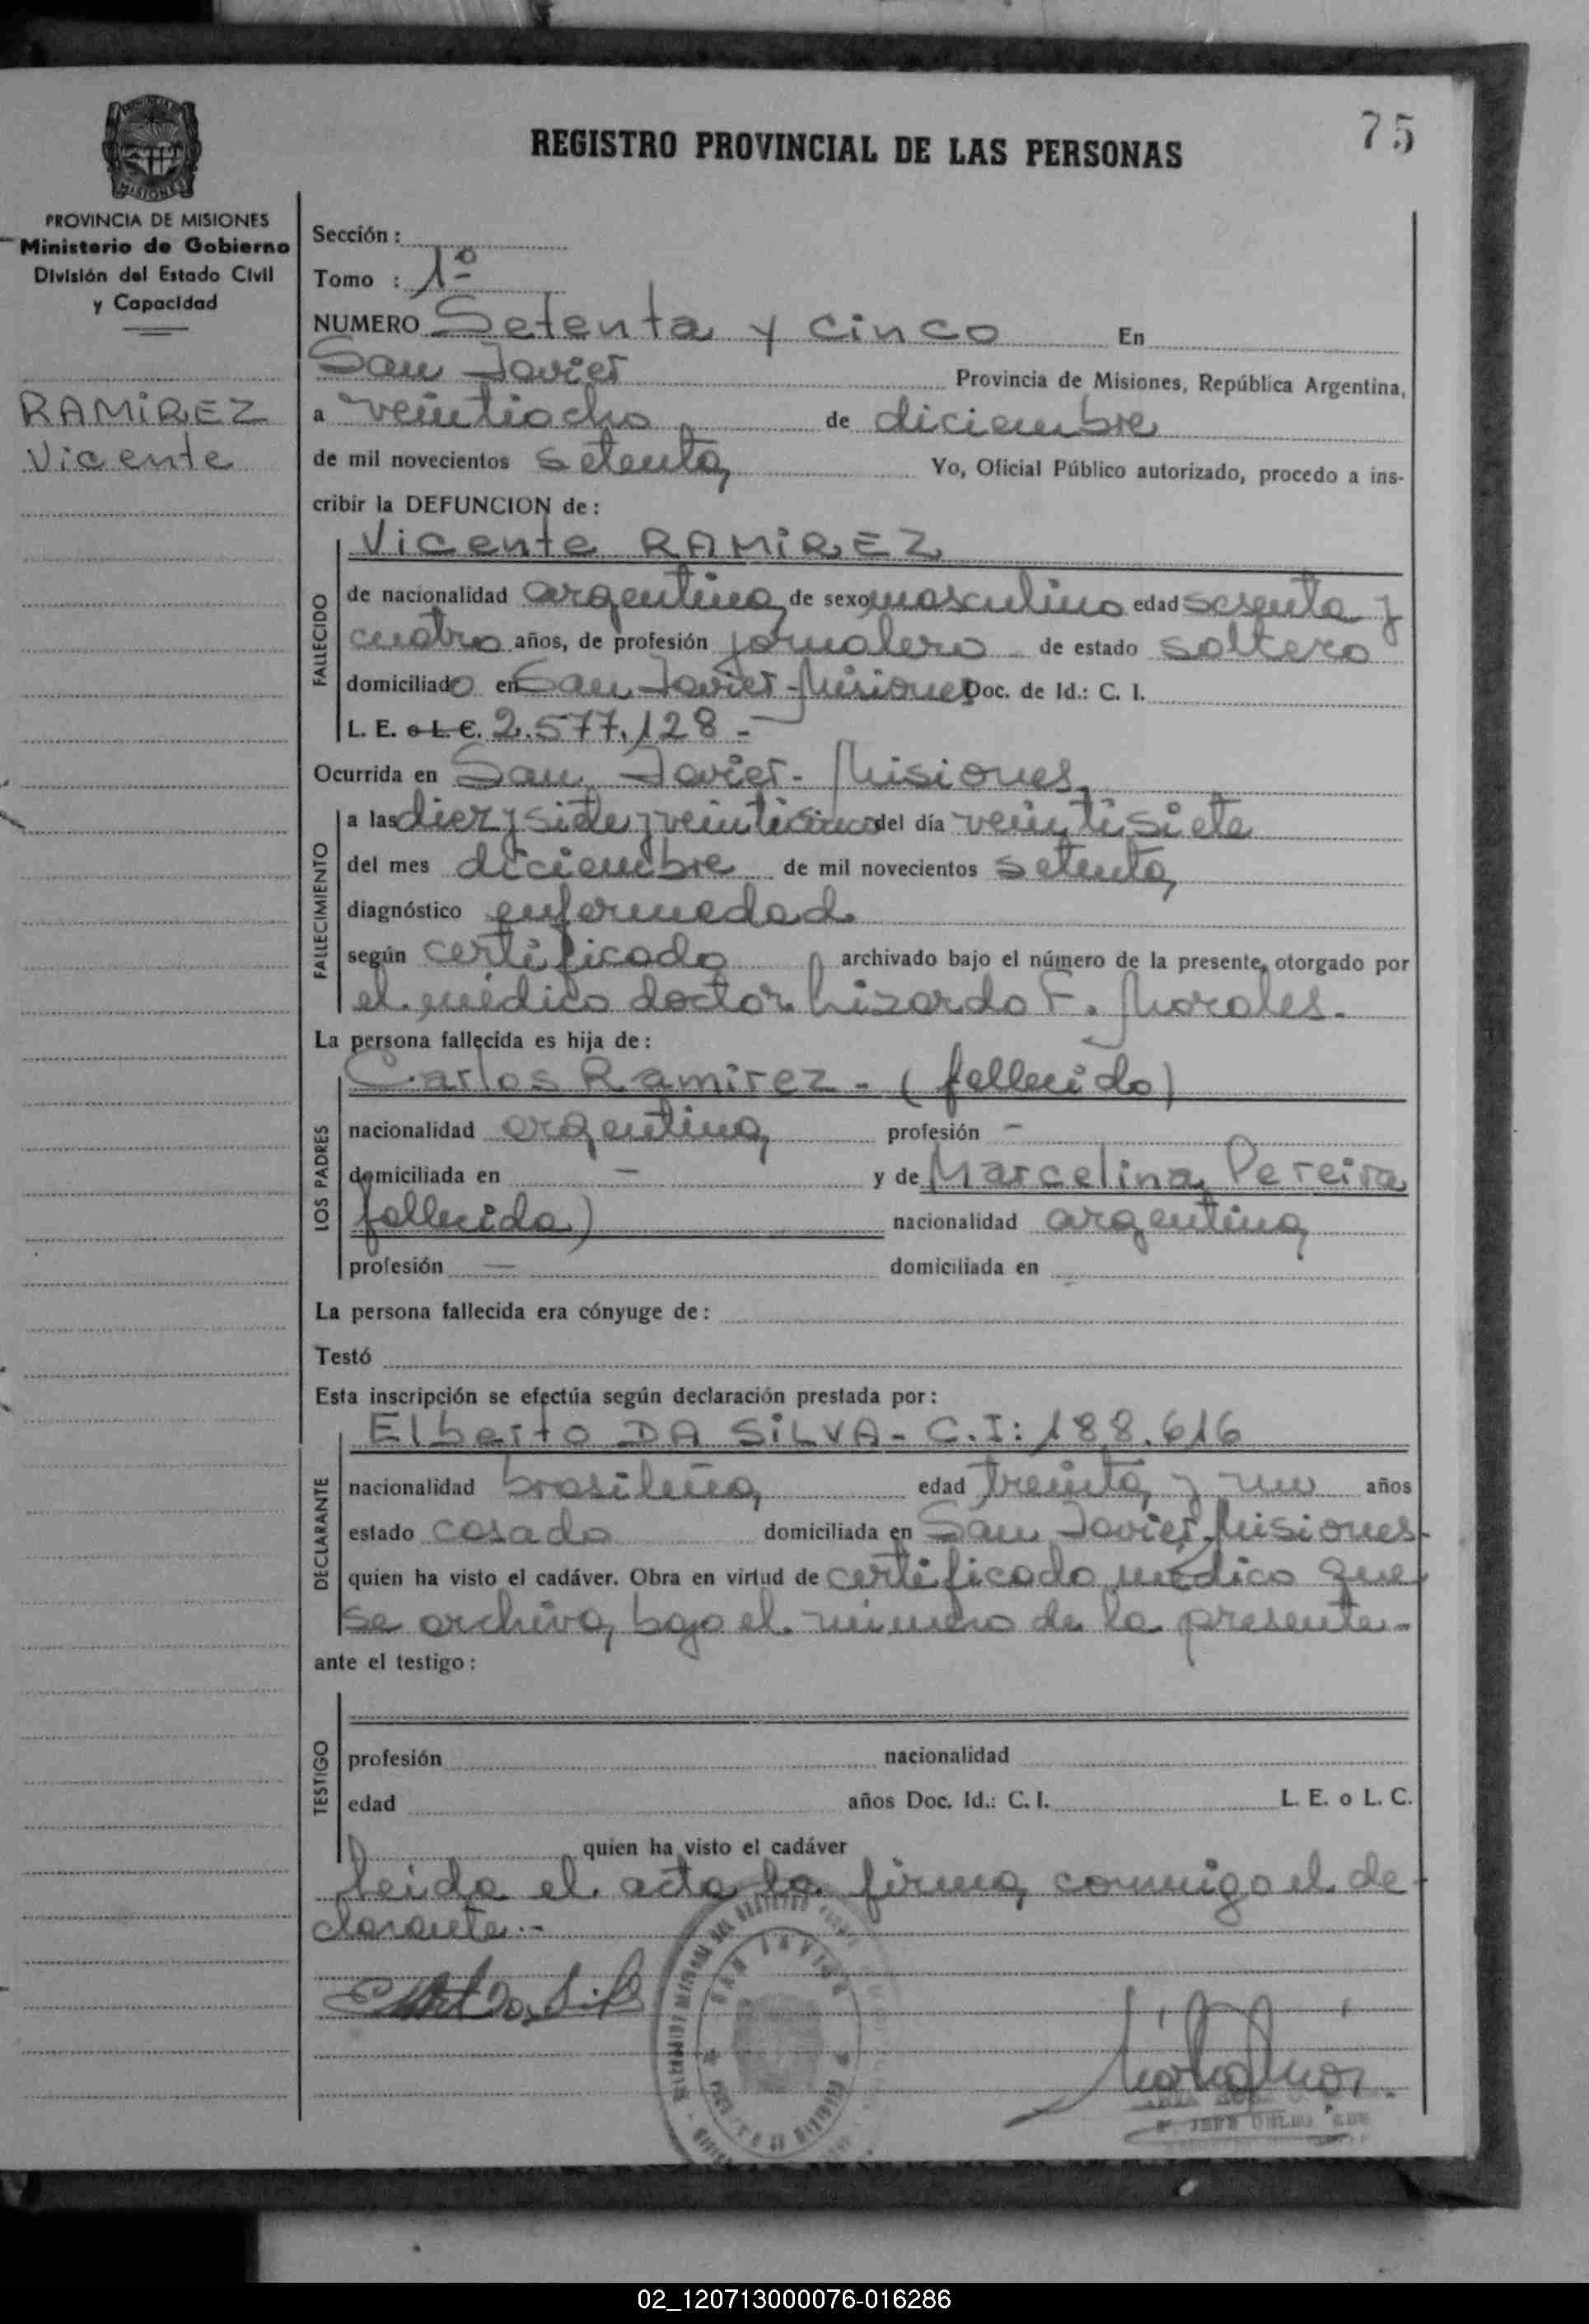 75
REGISTRO PROVINCIAL DE LAS PERSONAS
MISIONES
PROVINCIA DE MISIONES
Ministerio de Gobierno
División del Estado Civil
y Capacidad
RAMIREZ
Vicente
Sección :
Tomo : 1º
NUMERO Setenta y cinco En
San Javier Provincia de Misiones, República Argentina,
a veintiocho de diciembre
de mil novecientos setenta, Yo, Oficial Público autorizado, procedo a ins-
cribir la DEFUNCION de :
Vicente RAMIREZ
FALLECIDO
de nacionalidad argentina, de sexo masculino edad sesenta y
cuatro años, de profesión jornalero de estado soltero
domiciliado en San Javier-Misiones Doc. de Id.: C. I.
L. E. o L. C. 2.577.128 -
Ocurrida en San Javier - Misiones,
FALLECIMIENTO
a las diez y siete y veinticinco del día veintisiete
del mes diciembre de mil novecientos setenta,
diagnóstico enfermedad
según certificado archivado bajo el número de la presente, otorgado por
el médico doctor Lizardo F. Morales.
La persona fallecida es hija de :
LOS PADRES
Carlos Ramirez - (fallecido)
nacionalidad argentina, profesión -
domiciliada en - y de Marcelina Pereira
fallecida) nacionalidad argentina,
profesión - domiciliada en
La persona fallecida era cónyuge de :
Testó
Esta inscripción se efectúa según declaración prestada por :
DECLARANTE
Elberto DA SILVA - C.I: 188.616
nacionalidad brasileña, edad treinta y un años
estado casado domiciliada en San Javier, Misiones-
quien ha visto el cadáver. Obra en virtud de certificado médico que
se archiva, bajo el número de la presente.-
ante el testigo :
TESTIGO
profesión nacionalidad
edad años Doc. Id.: C. I. L. E. o L. C.
quien ha visto el cadáver
Leida el acta la firma, conmigo el de-
clarante.-
SAN JAVIER
02_120713000076-016286